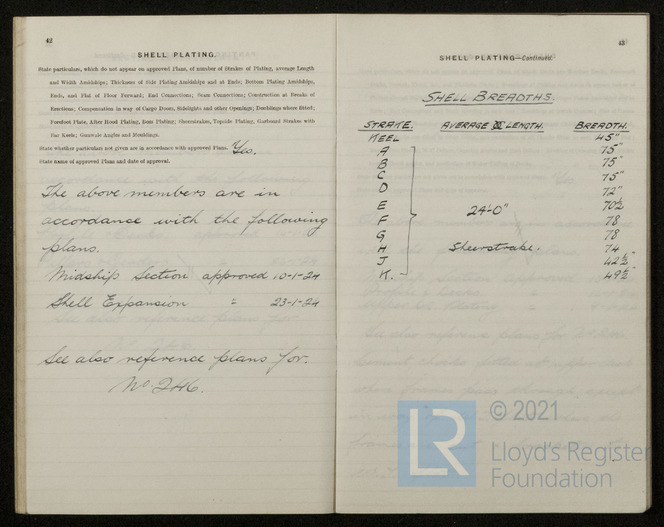 42
SHELL PLATING.
State particulars, which do not appear on approved Plans, of number of Strakes of Plating, average Length
and Width Amidships; Thickness of Side Plating Amidships and at Ends; Bottom Plating Amidships,
Ends, and Flat of Floor Forward; End Connections; Seam Connections; Construction at Breaks of
Erections; Compensation in way of Cargo Doors, Sidelights and other Openings; Doublings where fitted;
Forefoot Plate, After Hood Plating, Boss Plating; Sheerstrakes, Topside Plating, Garboard Strakes with
Bar Keels; Gunwale Angles and Mouldings.
State whether particulars not given are in accordance with approved Plans. Yes.
State name of approved Plans and date of approval.
The above members are in
accordance with the following
plans.
Midship Section approved 10-1-24
Shell Expansion " 23-1-24
See also reference plans for.
No 246.
43
SHELL PLATING—Continued.
SHELL BREADTHS.
STRAKE. AVERAGE LENGTH. BREADTH.
KEEL 45"
A 75"
B 75"
C 75"
D 72"
E 24'-0" 70½
F 78
G 78
H Sheerstrake. 74
J 42½"
K. 49½"
LR
© 2021
Lloyd's Register
Foundation